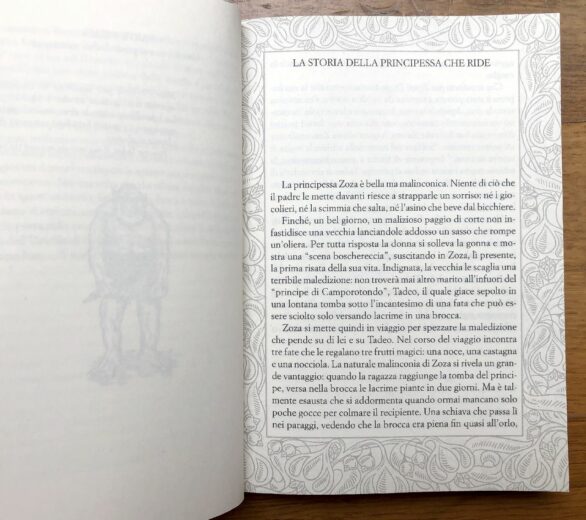 LA STORIA DELLA PRINCIPESSA CHE RIDE
La principessa Zoza è bella ma malinconica. Niente di ciò che
il padre le mette davanti riesce a strapparle un sorriso: né i gio-
colieri, né la scimmia che salta, né l'asino che beve dal bicchiere.
Finché, un bel giorno, un malizioso paggio di corte non in-
fastidisce una vecchia lanciandole addosso un sasso che rompe
un'oliera. Per tutta risposta la donna si solleva la gonna e mo-
stra una "scena boschereccia", suscitando in Zoza, lì presente,
la prima risata della sua vita. Indignata, la vecchia le scaglia una
terribile maledizione: non troverà mai altro marito all'infuori del
"principe di Camporotondo", Tadeo, il quale giace sepolto in
una lontana tomba sotto l'incantesimo di una fata che può es-
sere sciolto solo versando lacrime in una brocca.
Zoza si mette quindi in viaggio per spezzare la maledizione
che pende su di lei e su Tadeo. Nel corso del viaggio incontra
tre fate che le regalano tre frutti magici: una noce, una castagna
e una nocciola. La naturale malinconia di Zoza si rivela un gran-
de vantaggio: quando la ragazza raggiunge la tomba del princi-
pe, versa nella brocca le lacrime piante in due giorni. Ma è tal-
mente esausta che si addormenta quando ormai mancano solo
poche gocce per colmare il recipiente. Una schiava che passa lì
nei paraggi, vedendo che la brocca era piena fin quasi all'orlo,